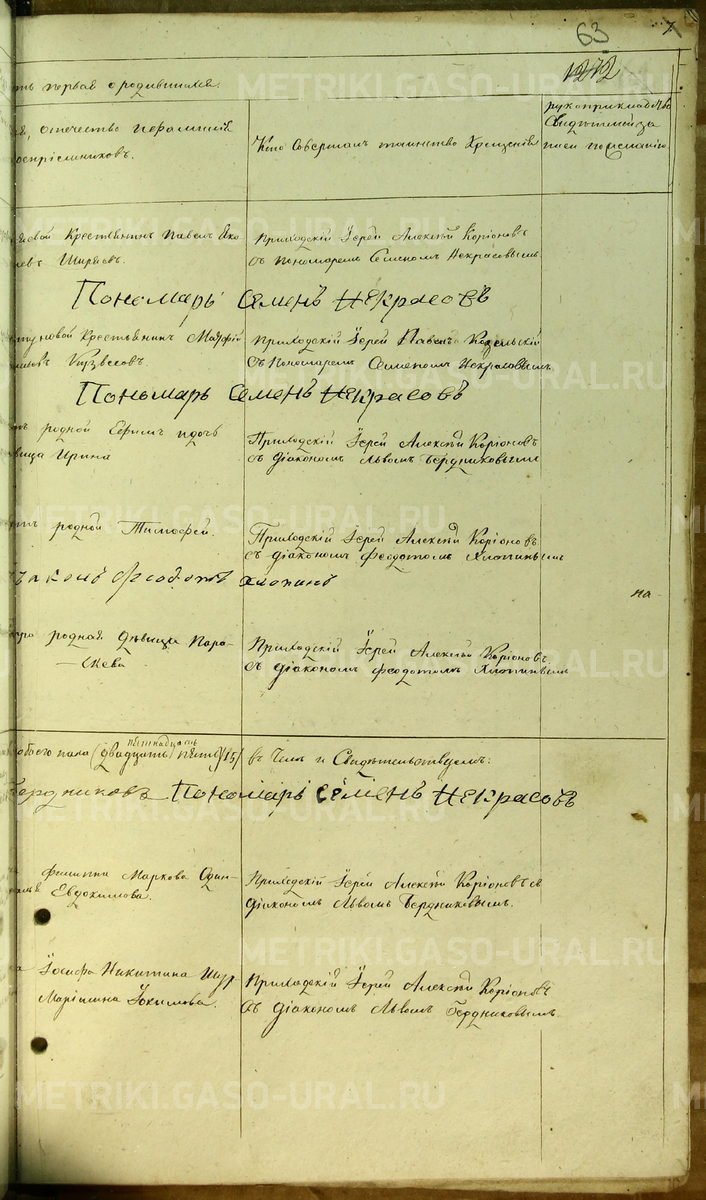 63
1272
ть первая о родившихся.
отечество и фамилия
воспріемниковъ.
Кто Совершалъ таинство Крещенія
рукоприкладство
Свидѣтелей за
писи по желанію
Крестьянинъ Павелъ Яко
левъ Ширяевъ.
Приходскій Іерей Алексѣй Коріоновъ
съ Пономаремъ Семеномъ Некрасовымъ
Пономарь Семенъ Некрасовъ
Крестьянинъ Матфей
Приходскій Іерей Павелъ Козельскій
съ Пономаремъ Семеномъ Некрасовымъ
Пономарь Семенъ Некрасовъ
родной Ефимъ и дочь
вица Ирина
Приходскій Іерей Алексѣй Коріоновъ
съ діакономъ Львомъ Бердниковымъ
родной Тимофей.
Приходскій Іерей Алексѣй Коріоновъ
съ діакономъ Феодотомъ Хлопинымъ
ъяконъ Феодотъ Хлопинъ
на
родная дѣвица Пара-
скева
Приходскій Іерей Алексѣй Коріоновъ
съ діакономъ Феодотомъ Хлопинымъ
пятнадцать
обоего пола (двадцать пять) /15/ въ чемъ и Свидѣтельствуемъ:
Бердниковъ Пономарь Семенъ Некрасовъ
Филиппа Маркова Один-
Евдокимова.
Приходскій Іерей Алексѣй Коріоновъ съ
діакономъ Львомъ Бердниковымъ.
Іосифа Никитина Шир
Маріамна Іокимова.
Приходскій Іерей Алексѣй Коріоновъ
съ діакономъ Львомъ Бердниковымъ.
METRIKI.GASO-URAL.RU